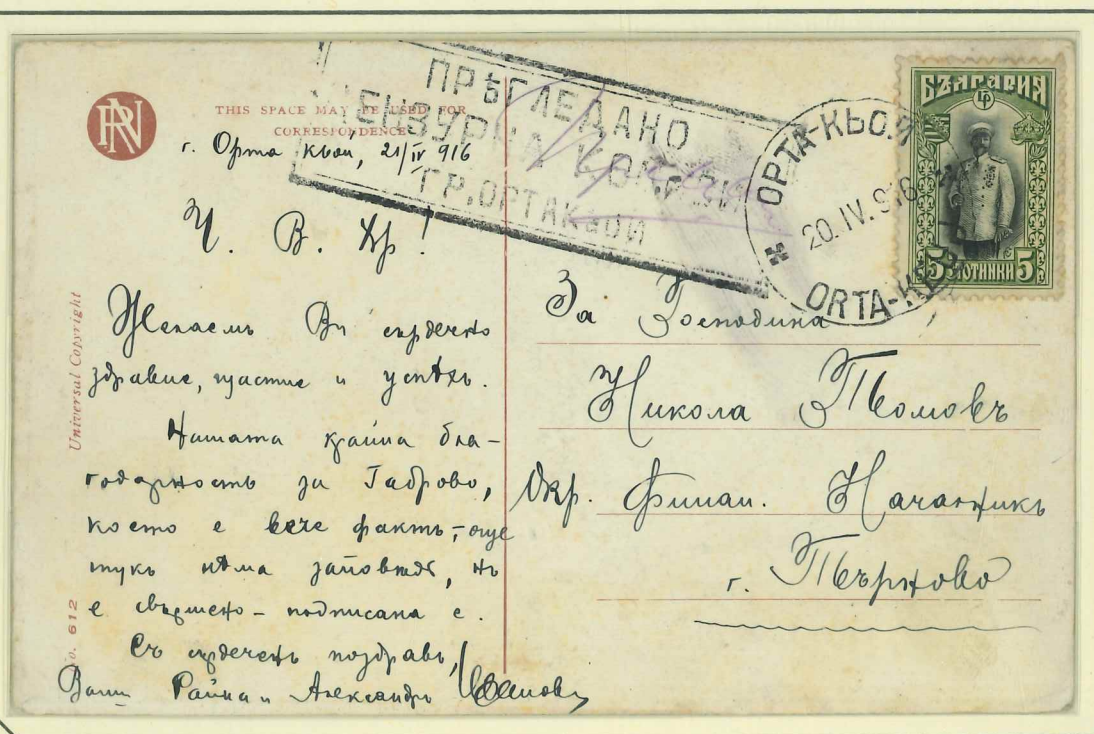 THIS SPACE MAY BE USED FOR
CORRESPONDENCE
г. Орта кьой, 21/IV 916
Ч. В. Хр!
Желаемъ Ви сърдечно
здравие, щастие и успѣхъ.
Нашата крайна бла-
годарность за Габрово,
което е вече фактъ, - още
тукъ нѣма заповѣдь, но
е свършено - подписана е.
Съ сърдеченъ поздравъ,
Ваши Райна и Александъръ
ПРѢГЛЕДАНО
ЦЕНЗУРНА КОМ.
ГР. ОРТАКЬОЙ
ОРТА-КЬО
20.IV.916
ORTA-K
БЪЛГАРИЯ
5 СТОТИНКИ 5
За Господина
Никола Тюмовъ
Окр. Финан. Началникъ
г. Търново
Universal Copyright
No. 612